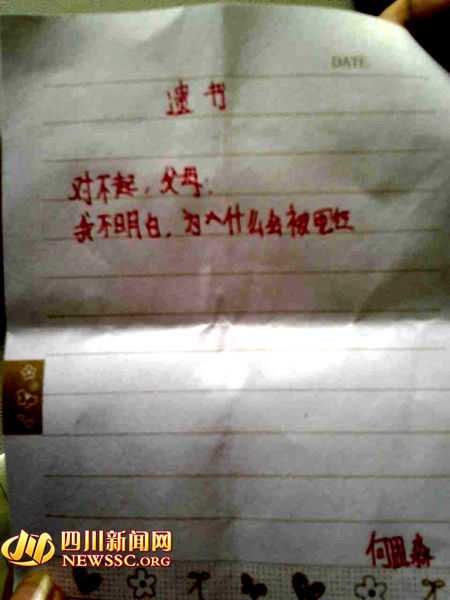 DATE
遗书
对不起，父母.
我不明白，为什么会被冤枉
何
四川新闻网
NEWSSC.ORG